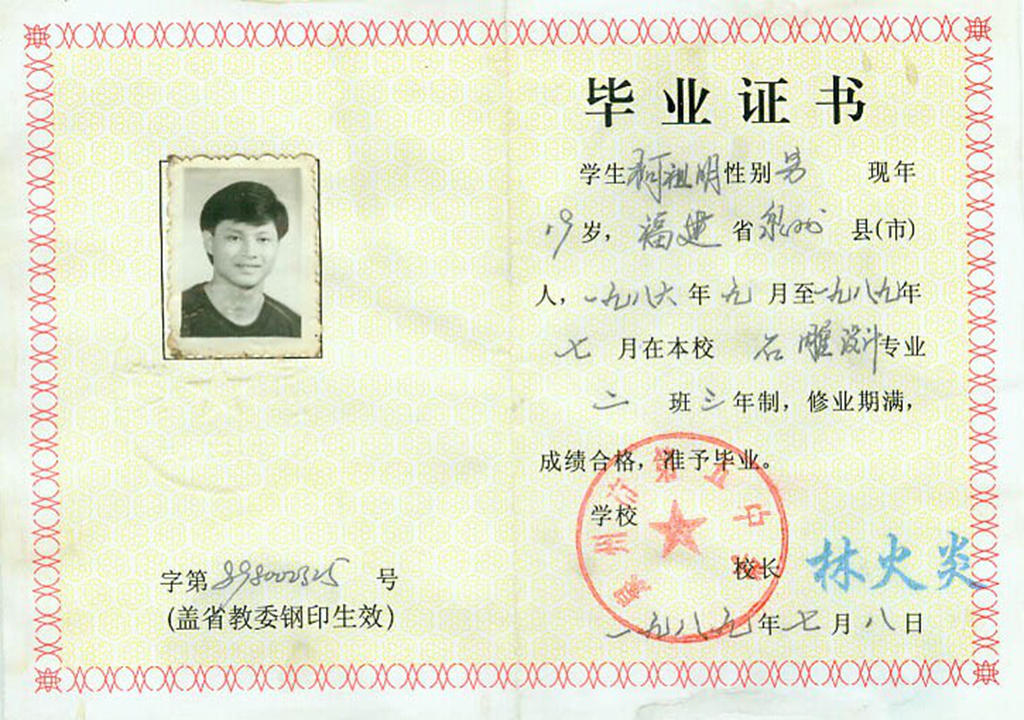 毕业证书
学生柯祖明性别男 现年
19岁，福建省泉州县(市)
人，一九八六年九月至一九八九年
七月在本校石雕设计专业
二班三年制，修业期满，
成绩合格，准予毕业。
学校
泉州市第五中学
校长 林火炎
一九八九年七月八日
字第898002325号
(盖省教委钢印生效)